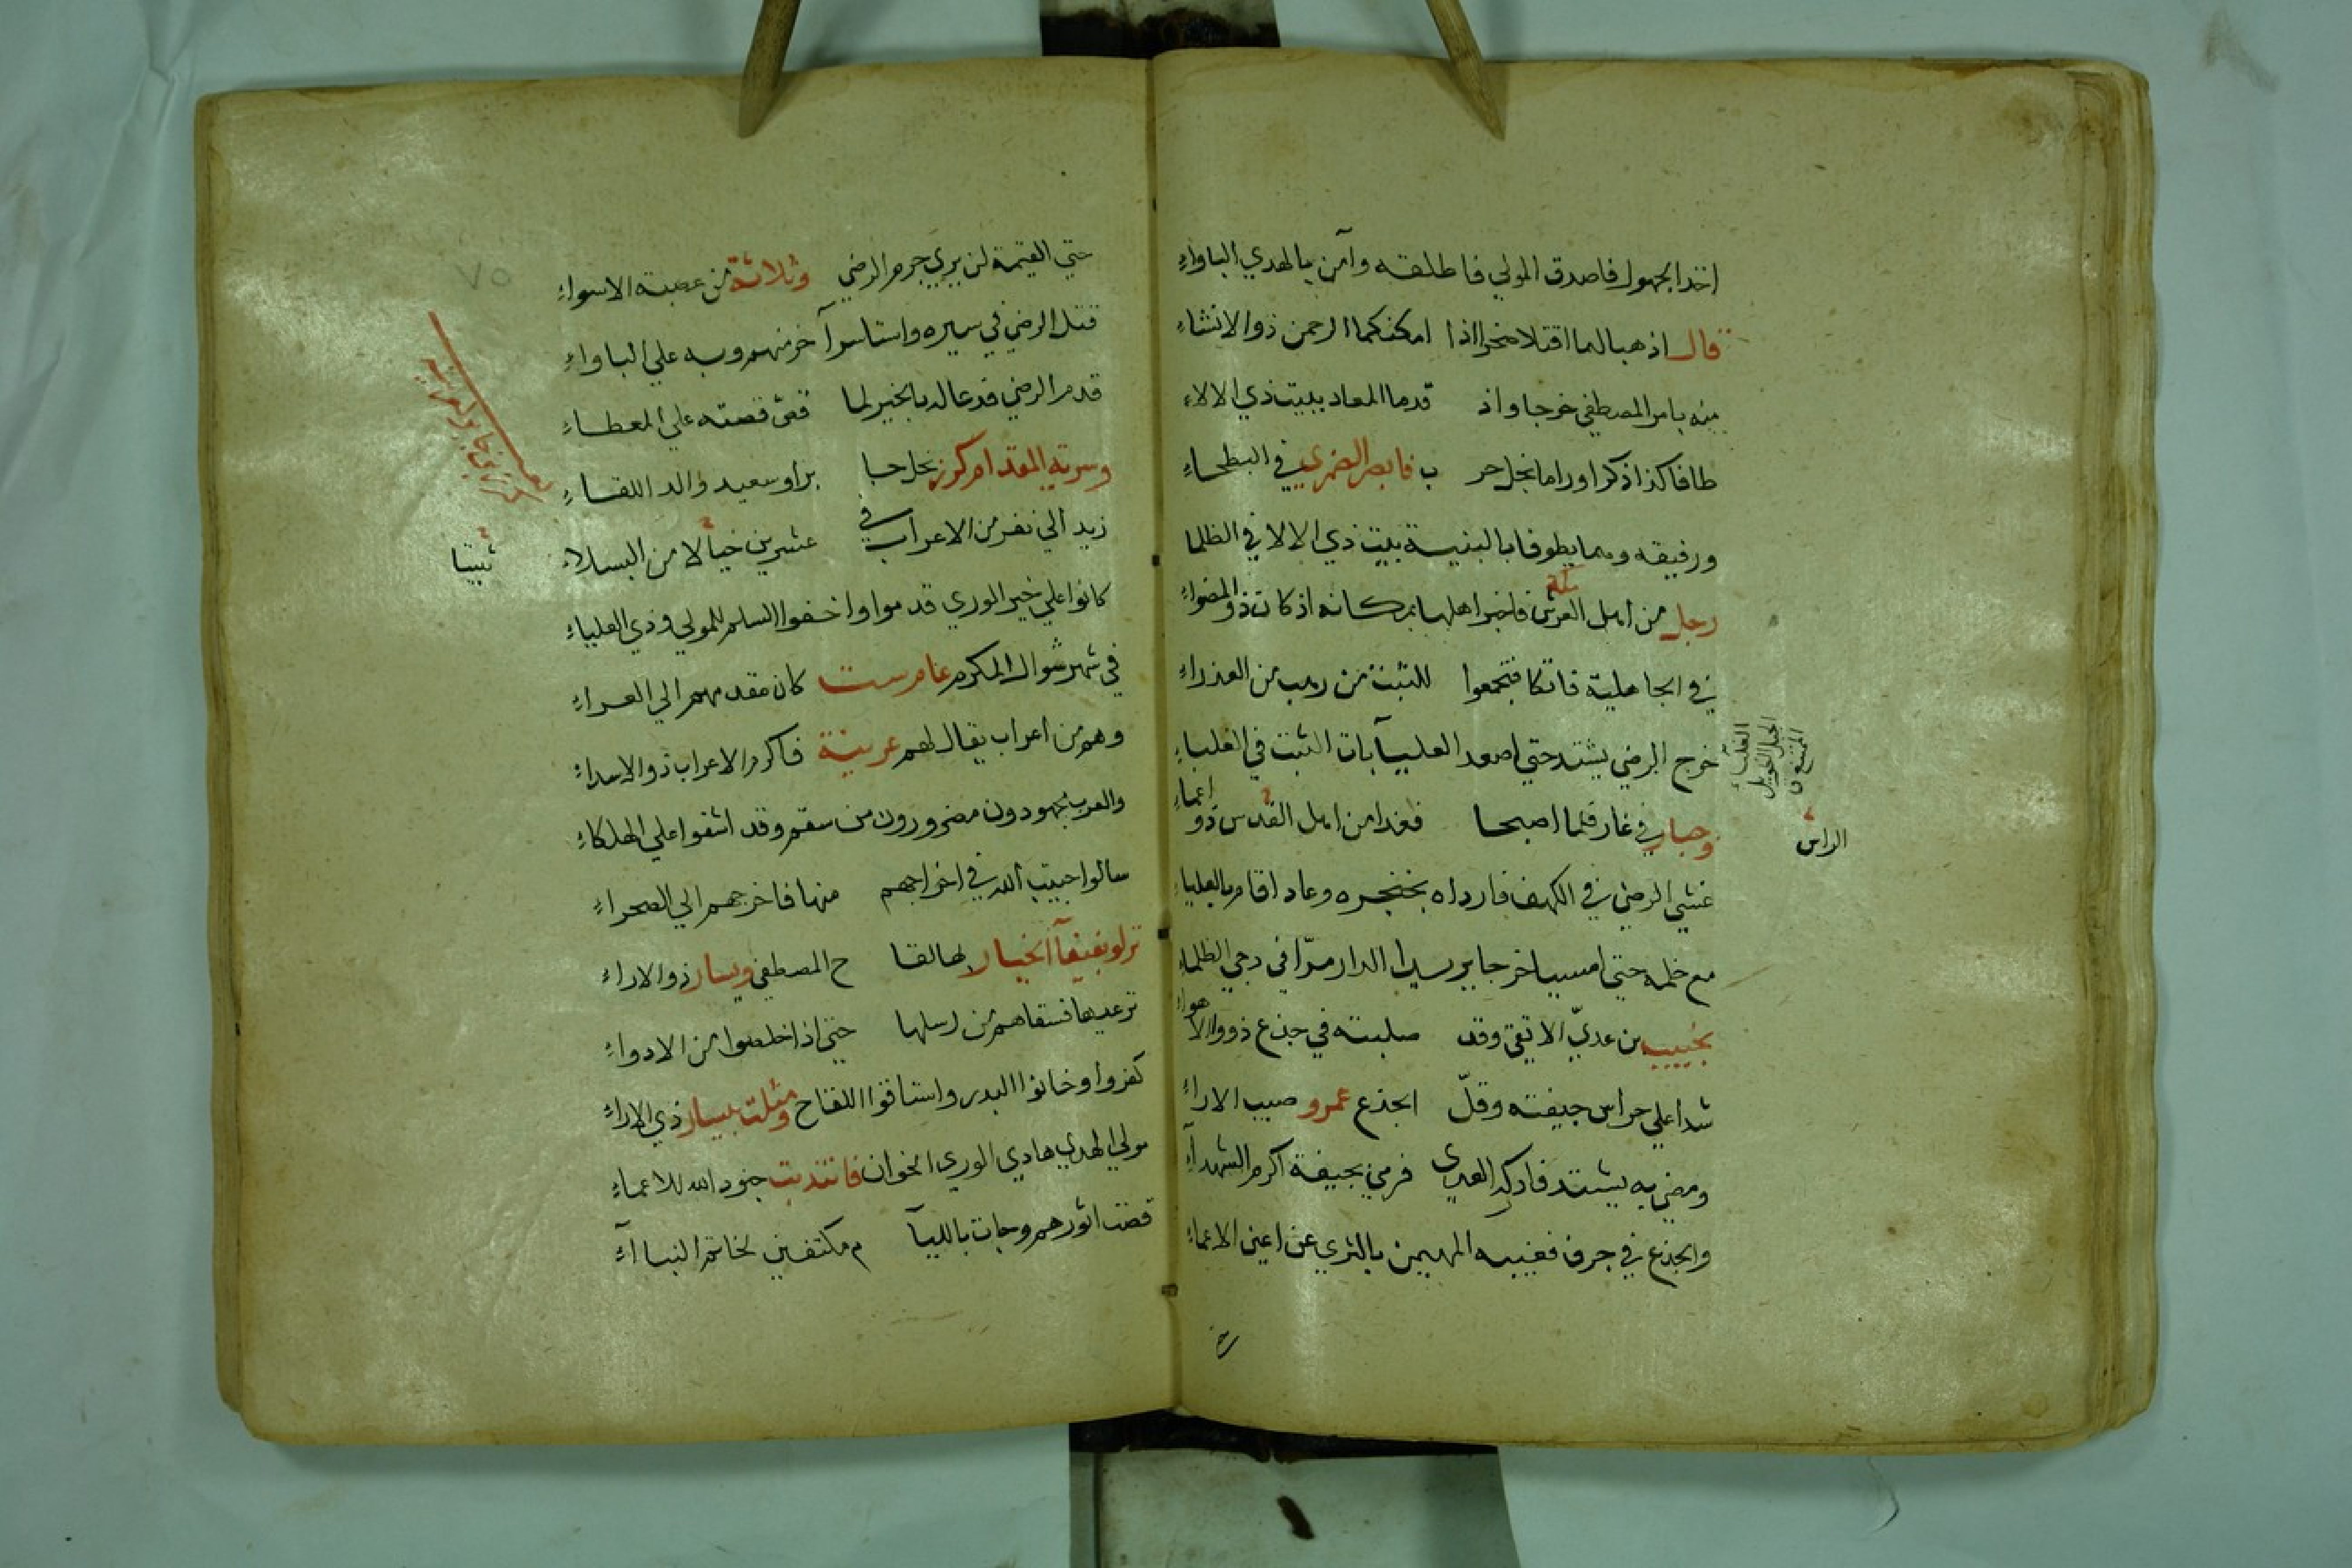 اخذ الجهول فاصدق المولي فاطلقه وآمن بالهدي الباواء
قال اذهبا لما اقتلا صخرا اذا امكنكما الرحمن ذو الانشاء
بامر المصطفي خرجا واذ قدما المعاد ببيت ذي الالاء
طافا كذا ذكرا وراما نجل حر ب فابصر الضمري في البطحاء
ورفيقه وهما يطوفا بالبنية بيت ذي الالا في الظلما
رجل من اهل العرش فاخبر اهلها بمكانه اذ كان ذو الضواء
مكة
في الجاهلية فاتكا فتجمعوا للثبت من رهب من العذراء
خرج الرضي يشتد حتي اصعد العليا بات الثبت في الغلباء
الغلباء
الجبل الطويل
الممتنع ق
وجبار في غار فلما اصبحا فغدا من اهل القدس ذو اعماء
الراس
غشي الرضي في الكهف فارداه بخنجره وعاد اقام بالعلياء
مع خله حتي امسيا خرجا يريدا الدار مرّا في دجي الظلماء
بخبيب بن عديّ الاتقي وقد صلبته في جذع ذووا الاهواء
شدا علي حراس جيفته وقلّ الجذع عمرو صيب الاراء
ومضي به يشتد فادركه العدي فرمي بجيفة اكرم الشهدآء
والجذع في جرف فغيبه المهيمن بالثري عن اعين الاعماء
حتي القيمة لن يري جرم الرضي وثلاثة من عصبة الاسواء
قتل الرضي في سيره واستاسر آخر منهم وبه علي الباواء
قدم الرضي فدعا له بالخير لما قص قصته علي المعطاء
وسرية المقدام كرز نجل جا بر او سعيد والد اللقاء
زيد الي نفر من الاعراب في عشرين خيالا من البسلاء
ثبيتا
كانوا علي خير الوري قدموا واخفوا السلم للمولي وذي العلياء
في شهر شوال المكرم عام ست كان مقدمهم الي العراء
وهم من اعراب يقال لهم عرينة فاكرم الاعراب ذو الاسداء
والعرب مجهودون مضرورون من سقم وقد اشفوا علي الهلكاء
سالوا حبيب الله في اخراجهم منها فاخرجهم الي الصحراء
نزلو بفيفآ الخبار لها لقا ح المصطفي ويسار ذو الاراء
ترعيها فسقاهم من رسلها حتي اذا خلصوا من الادواء
كفروا وخانوا البدر واستاقوا اللقاح ومثلت بيسار ذي الاراء
مولي الهدي هادي الوري الخوان فانتدبت جنود الله للاعماء
قصت اثورهم وجات بالليآ م مكتفين لخاتم النباآء